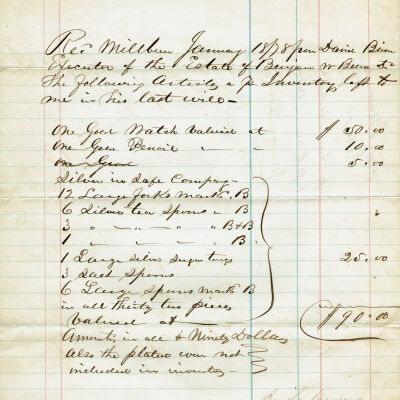 Rec Millburn January 18/78 from David Bion
Executor of the Estate of Benjam W Beun
The following Articles as pr Inventory left to
me in his last will —
One Gold Watch Valued at $ 50.00
One Gold Pencil " " 10.00
One Gold 5.00
Silver in Safe Company
12 Large forks mark B
6 Silver tea Spoons " B
3 " — " — " " B&B
1 " " B.
1 Large Silver Sugar tongs 25.00
3 Salt Spoons
6 Large Spoons mark B
in all thirty two pieces
Valued at $90.00
Amounts in all to Ninety Dollars
Also the plated war not
included in inventory —